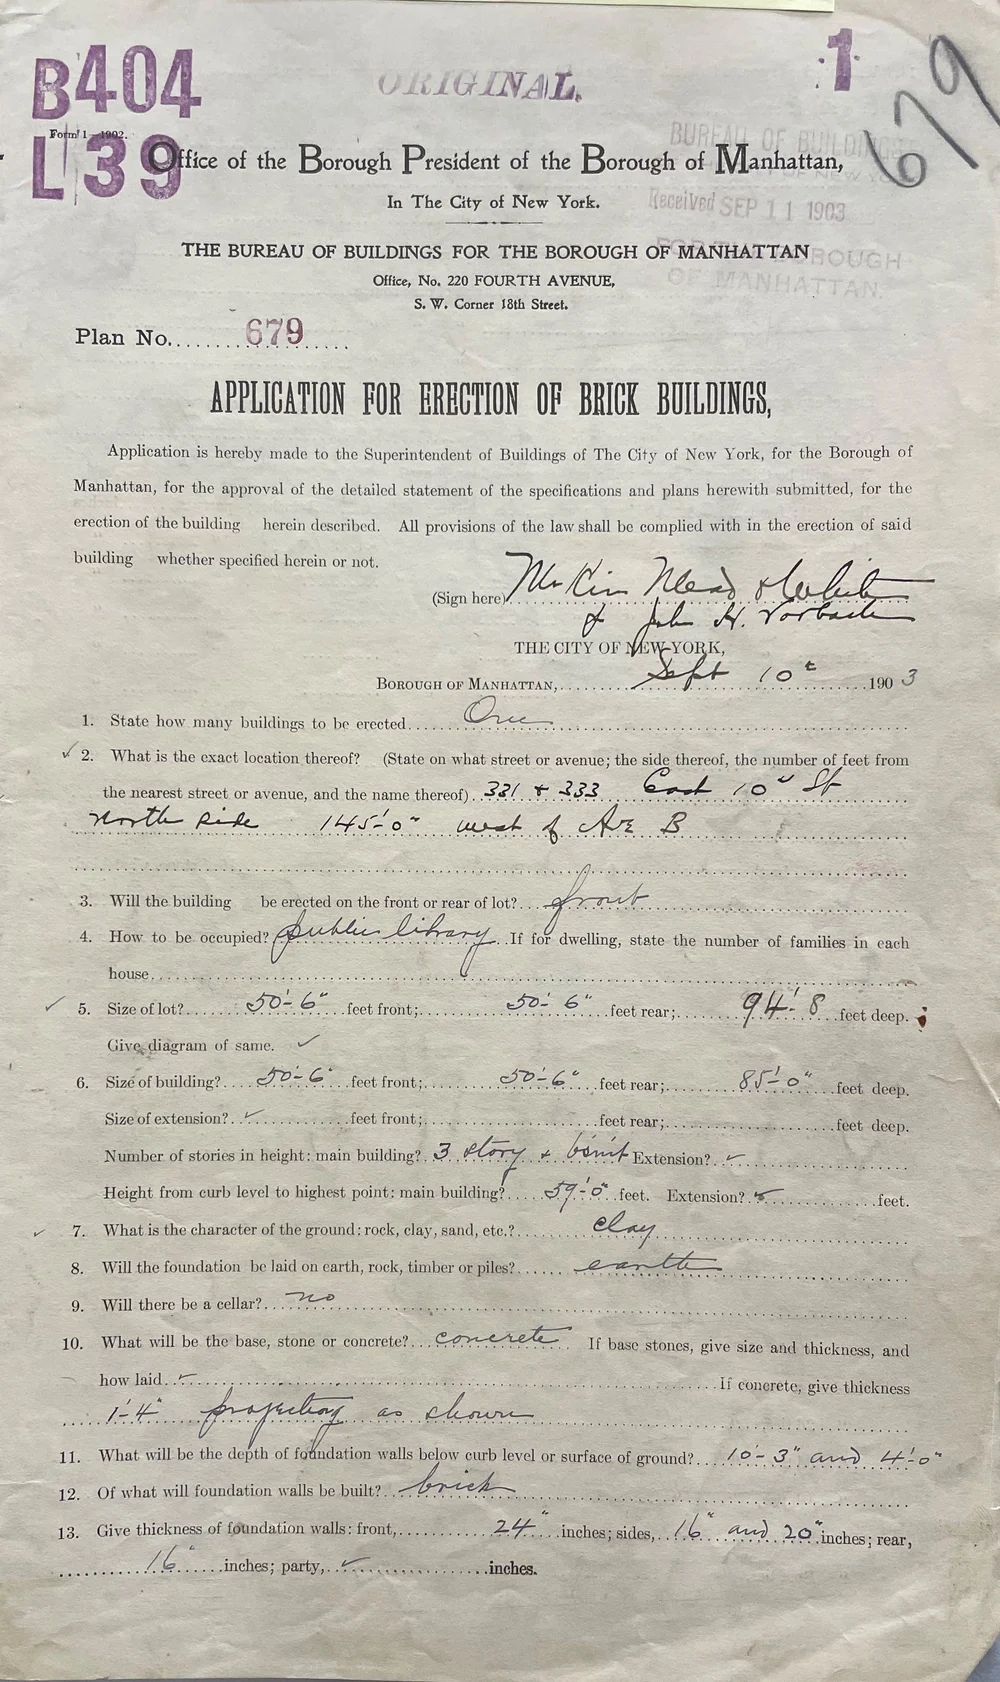 B404
ORIGINAL.
1
679
Form 1—1902.
L39
Office of the Borough President of the Borough of Manhattan,
In The City of New York.
BUREAU OF BUILDINGS
OF NEW YORK
Received SEP 11 1903
FOR THE BOROUGH
OF MANHATTAN.
THE BUREAU OF BUILDINGS FOR THE BOROUGH OF MANHATTAN
Office, No. 220 FOURTH AVENUE,
S. W. Corner 18th Street.
Plan No. 679
APPLICATION FOR ERECTION OF BRICK BUILDINGS,
Application is hereby made to the Superintendent of Buildings of The City of New York, for the Borough of
Manhattan, for the approval of the detailed statement of the specifications and plans herewith submitted, for the
erection of the building herein described. All provisions of the law shall be complied with in the erection of said
building whether specified herein or not.
(Sign here) McKim Mead & White
& John H. Vorbach
THE CITY OF NEW YORK,
BOROUGH OF MANHATTAN, Sept 10th 1903
1. State how many buildings to be erected One
2. What is the exact location thereof? (State on what street or avenue; the side thereof, the number of feet from
the nearest street or avenue, and the name thereof) 331 & 333 East 10th St
North side 145'-0" west of Ave B
3. Will the building be erected on the front or rear of lot? front
4. How to be occupied? public library If for dwelling, state the number of families in each
house
5. Size of lot? 50'-6" feet front; 50'-6" feet rear; 94'-8 feet deep.
Give diagram of same. ✓
6. Size of building? 50'-6" feet front; 50'-6" feet rear; 85'-0" feet deep.
Size of extension? ✓ feet front; feet rear; feet deep.
Number of stories in height: main building? 3 story & bsmt Extension? ✓
Height from curb level to highest point: main building? 59'-0" feet. Extension? ✓ feet.
7. What is the character of the ground: rock, clay, sand, etc.? clay
8. Will the foundation be laid on earth, rock, timber or piles? earth
9. Will there be a cellar? no
10. What will be the base, stone or concrete? concrete If base stones, give size and thickness, and
how laid ✓ If concrete, give thickness
1'-4" projecting as shown
11. What will be the depth of foundation walls below curb level or surface of ground? 10'-3" and 4'-0"
12. Of what will foundation walls be built? brick
13. Give thickness of foundation walls: front, 24" inches; sides, 16" and 20" inches; rear,
16" inches; party, ✓ inches.